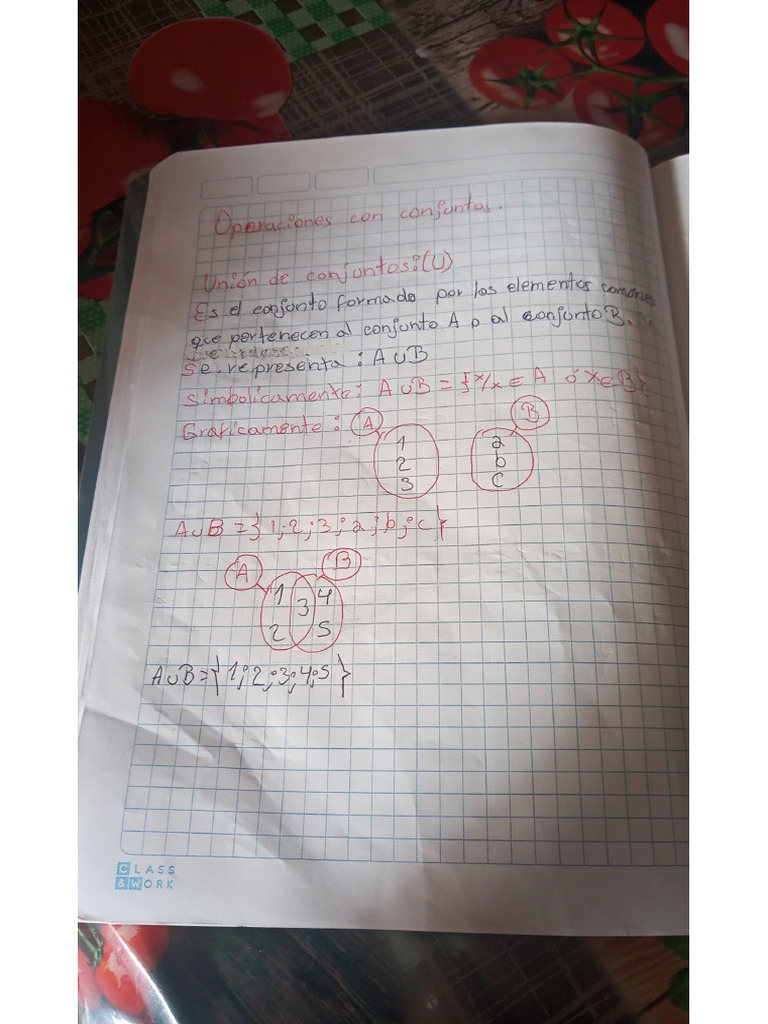 Operaciones con conjuntos.
Unión de conjuntos:(U)
Es el conjunto formado por los elementos comunes
que pertenecen al conjunto A o al conjunto B.
Se representa: A∪B
Simbolicamente: A∪B = {x/x ∈ A ó x ∈ B}
Graficamente: A B
1 a
2 b
3 c
A∪B = {1;2;3;a;b;c}
A B
1 3 4
2 5
A∪B = {1;2;3;4;5}
CLASS
&WORK